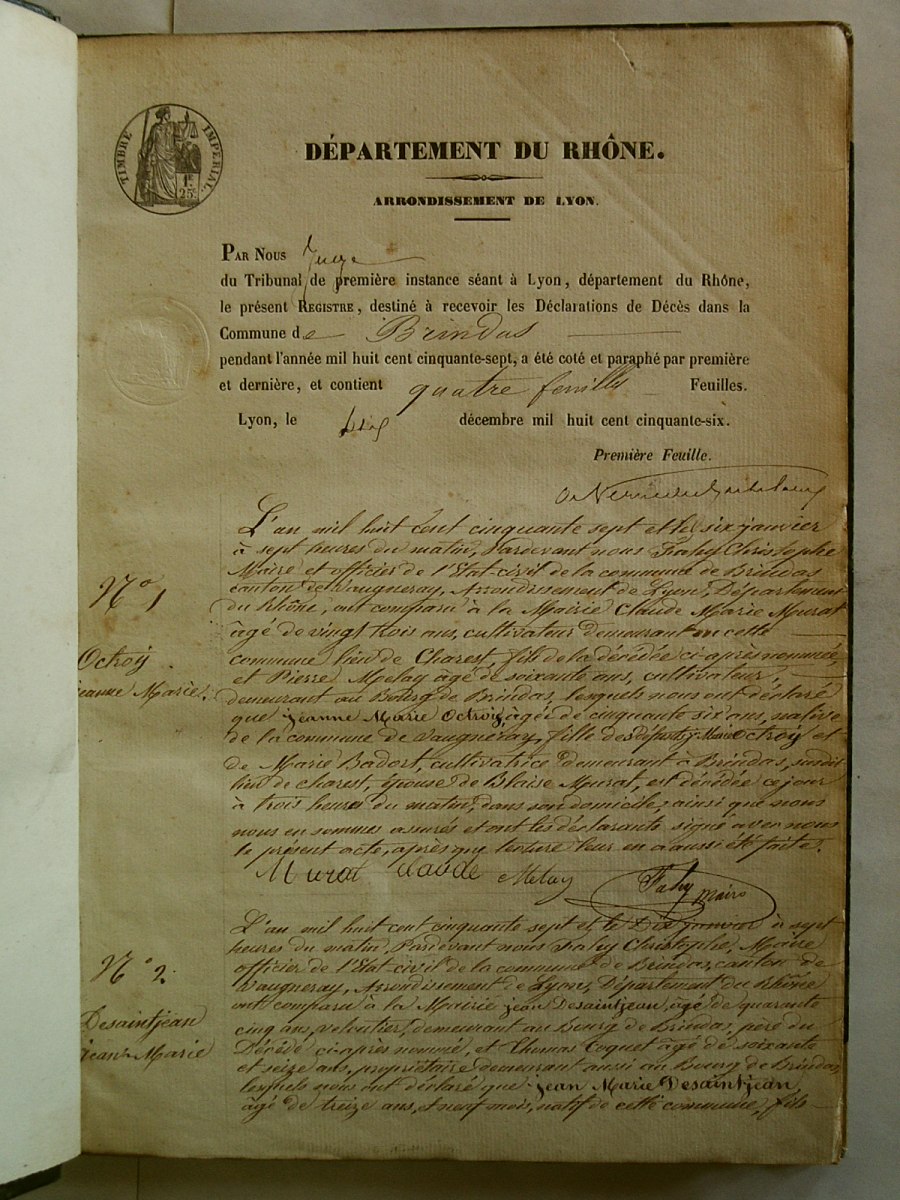 TIMBRE IMPÉRIAL.
1F.
25c.
DÉPARTEMENT DU RHÔNE.
ARRONDISSEMENT DE LYON.
PAR NOUS Juge
du Tribunal de première instance séant à Lyon, département du Rhône,
le présent REGISTRE, destiné à recevoir les Déclarations de Décès dans la
Commune de Brindas
pendant l'année mil huit cent cinquante-sept, a été coté et paraphé par première
et dernière, et contient quatre feuilles Feuilles.
Lyon, le décembre mil huit cent cinquante-six.
Première Feuille.
L'an mil huit cent cinquante sept et le six janvier
à sept heures du matin, Pardevant nous Fahy Christophe
Maire et officier de l'Etat-civil de la commune de Brindas
canton de Vaugneray, Arrondissement de Lyon, Département
N° 1
du Rhône, ont comparu à la Mairie Claude Marie Murat
âgé de vingt trois ans, cultivateur demeurant en cette
Octroy
commune lieu de Charest, fils de la décédée ci-après nommée,
et Pierre Melay âgé de soixante ans, cultivateur,
Jeanne Marie.
demeurant au Bourg de Brindas, lesquels nous ont déclaré
que Jeanne Marie Octroy, âgée de cinquante six ans, native
de la commune de Vaugneray, fille de Octroy et
de Marie Badort, cultivatrice demeurant à Brindas, susdit
lieu de charest, épouse de Blaise Murat, est décédée ce jour
à trois heures du matin, dans son domicile, ainsi que nous
nous en sommes assurés et ont les déclarants signé avec nous
le présent acte, après que lecture leur en a aussi été faite.
Murat Claude Melay Fahy maire
L'an mil huit cent cinquante sept et le Dix janvier à sept
heures du matin, Pardevant nous Fahy Christophe, Maire
N° 2.
officier de l'Etat-civil de la commune de Brindas, canton de
Vaugneray, Arrondissement de Lyon, Département du Rhône
ont comparu à la Mairie jean Desaintjean, âgé de quarante
Desaintjean
cinq ans, veloutier, demeurant au Bourg de Brindas, père du
Jean Marie
Décédé ci-après nommé, et Thomas Coquet âgé de soixante
et seize ans, propriétaire demeurant aussi au Bourg de Brindas
lesquels nous ont déclaré que jean Marie Desaintjean,
âgé de treize ans, et neuf mois, natif de cette commune, fils